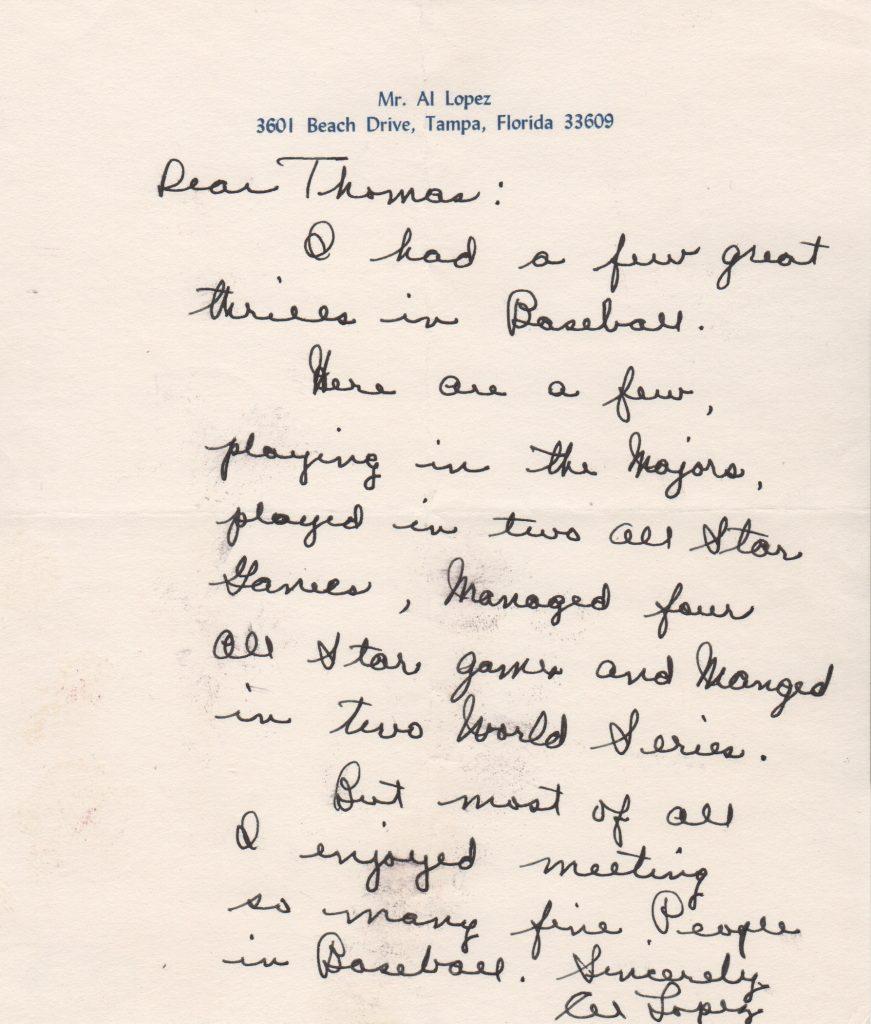 Mr. Al Lopez
3601 Beach Drive, Tampa, Florida 33609
Dear Thomas:
I had a few great
thrills in Baseball.
Here are a few,
playing in the Majors,
played in two All Star
Games, Managed four
All Star games and Manged
in two World Series.
But most of all
I enjoyed meeting
so many fine People
in Baseball. Sincerely
Al Lopez